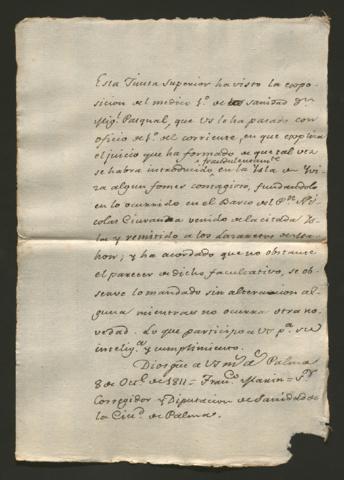 Esta Junta Superior ha visto la expo-
sicion del medico 1º. de la sanidad Dn.
Migl. Pasqual, que VS le ha pasado con
oficio de 1º. del corriente, en que explica
el juicio que ha formado de que tal vez
fraudulentamte.
se habra introducido en la Ysla de Yvi-
za algun fomes contagioso, fundandolo
en lo ocurrido en el Barco del Pn. Ni-
colas Ciurana venido de la citada Ys-
la y remitido a los Lazaretos de Ma-
hon; y ha acordado que no obstante
el parecer de dicho facultativo, se ob-
serve lo mandado sin alteracion al-
guna mientras no ocurra otra no-
vedad. Lo que participo a VS pa. su
inteliga. y cumplimiento.
Dios gue a VS ms. as. Palma
8 de Octe. de 1811 = Franco. Marin = Sr.
Corregidor y Diputacion de Sanidad de
la Ciud. de Palma.